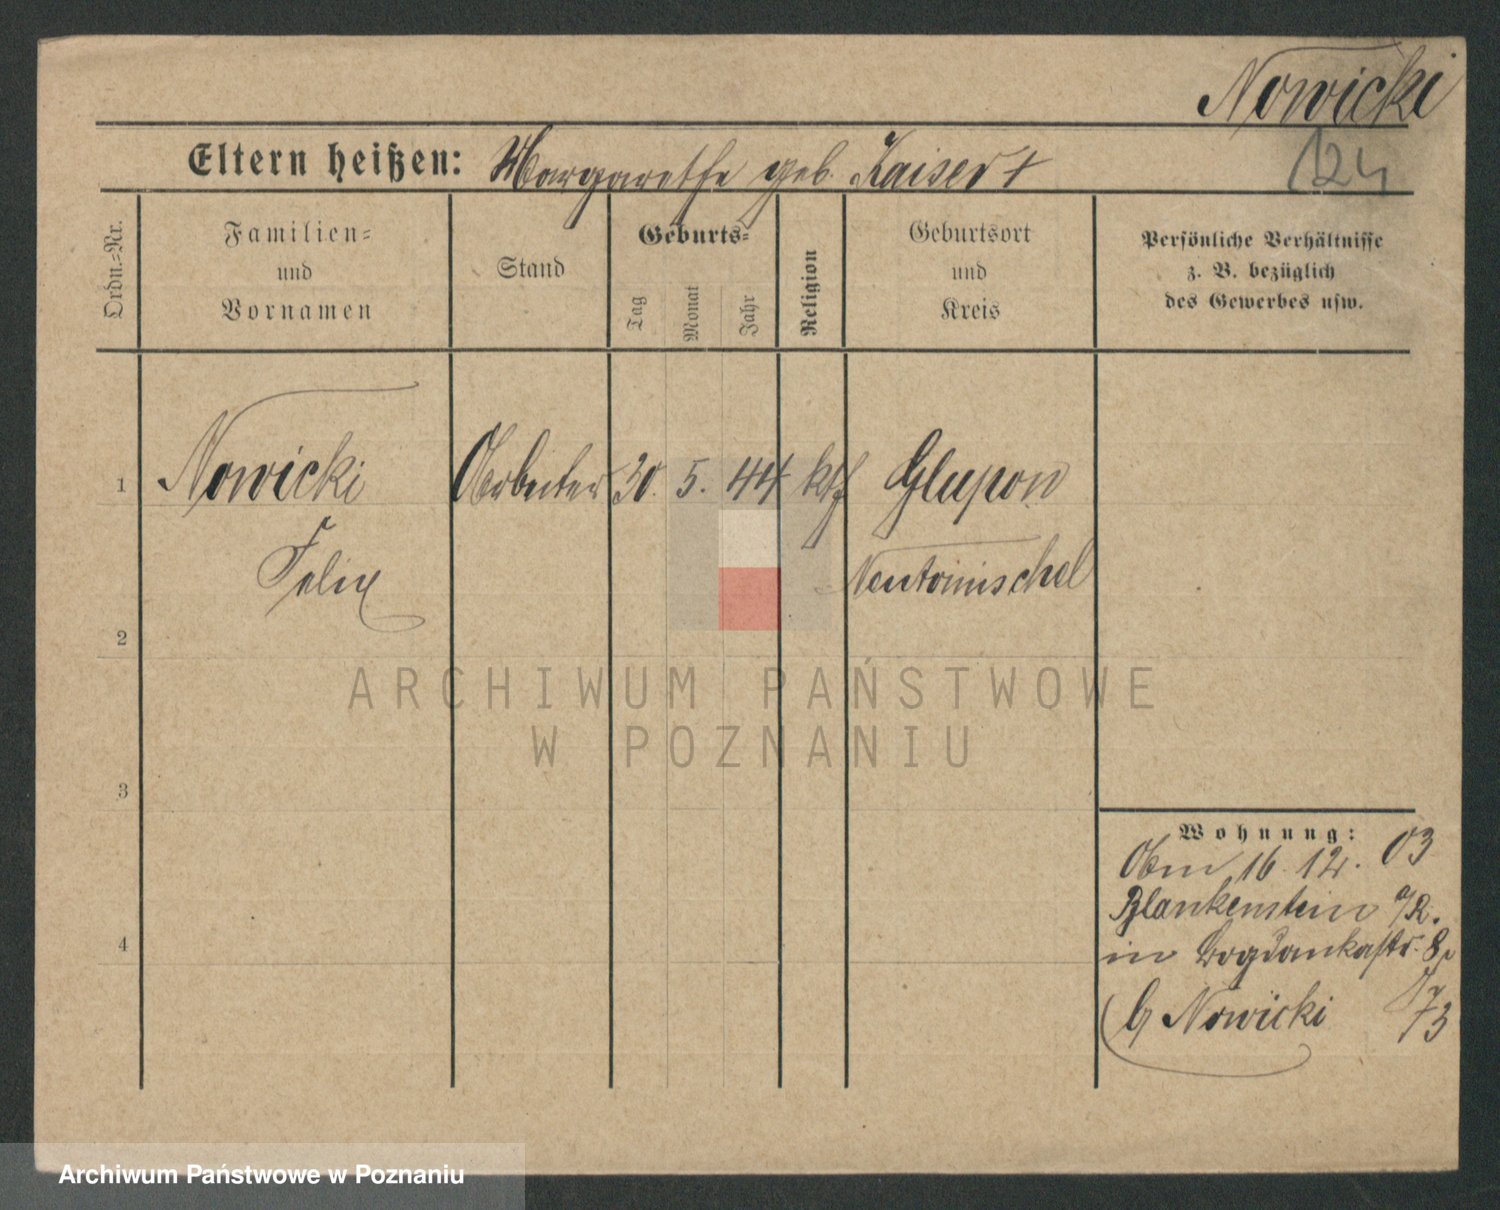 Nowicki
124
Eltern heißen: Margarethe geb. Kaiser †
Ordn.-Nr.
Familien-
und
Vornamen
Stand
Geburts-
Tag
Monat
Jahr
Religion
Geburtsort
und
Kreis
Persönliche Verhältnisse
z. B. bezüglich
des Gewerbes usw.
1
Nowicki
Arbeiter
30.
5.
44
kth
Glupon
Felix
Neutomischel
2
ARCHIWUM PAŃSTWOWE
W POZNANIU
3
Wohnung:
Am 16. 12. 03
Blankenstein
in Bogdankastr. 8
b Nowicki
4
Archiwum Państwowe w Poznaniu